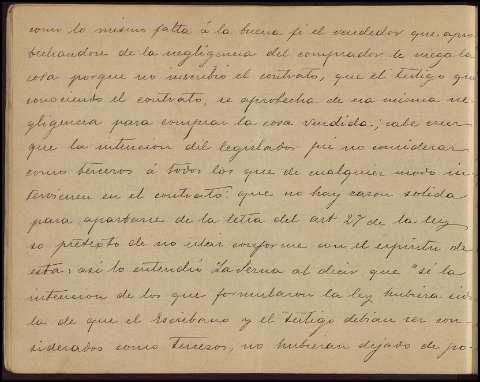 como lo mismo falta á la buena fé el vendedor que apro-
bechandose de la negligencia del comprador le niega la
cosa porque no inscribió el contrato, que el testigo que
conociento el contrato, se aprobecha de esa misma ne-
gligencia para comprar la cosa vendida; cabe creer
que la intencion del legislador fué no considerar
como terceros á todos los que de cualquier modo in-
tervienen en el contrato: que no hay razon solida
para apartarse de la letra del art 27 de la ley
so pretesto de no estar conforme con el espiritu de
esta: asi lo entendió La Serna al decir que "si la
intencion de los que formularon la ley hubiera sido
la de que el Escribano y el testigo debian ser con-
siderados como terceros, no hubieran dejado de po-